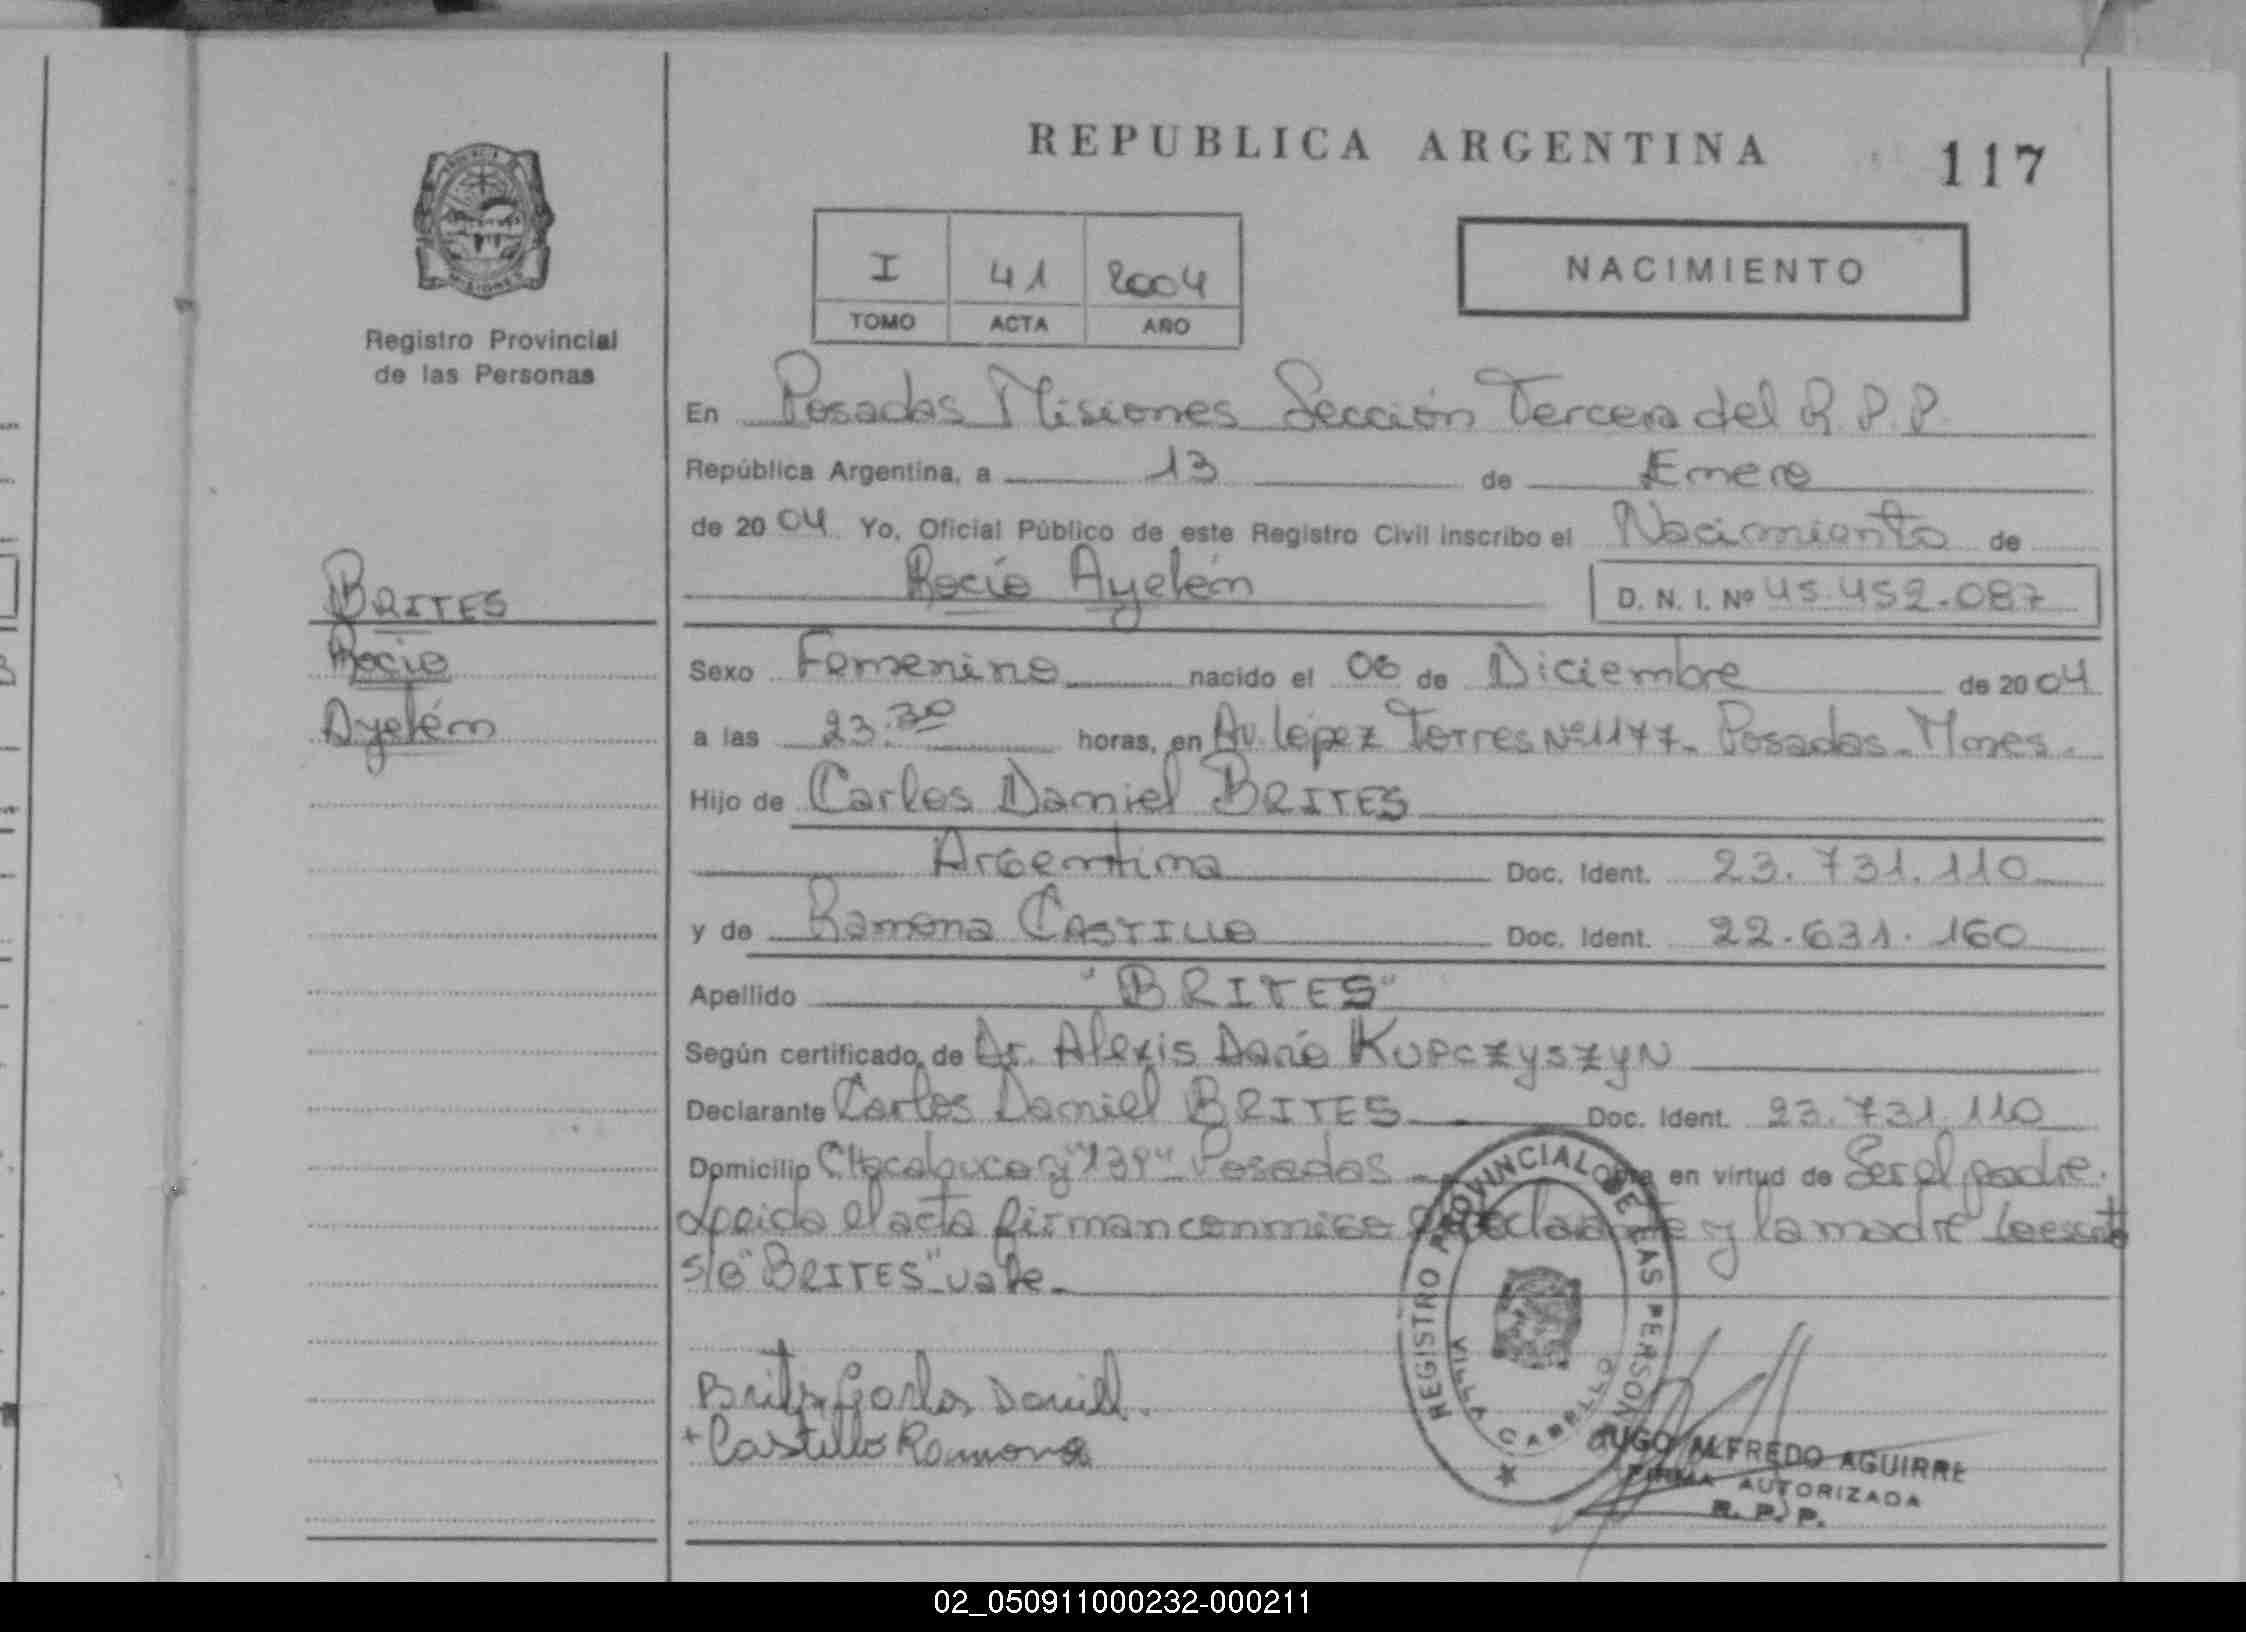 REPUBLICA ARGENTINA
117
I 41 2004
TOMO ACTA AÑO
NACIMIENTO
PROVINCIA DE MISIONES
Registro Provincial
de las Personas
BRITES
Rocío
Ayelén
En Posadas Misiones Sección Tercera del R.P.P.
República Argentina, a 13 de Enero
de 2004 Yo, Oficial Público de este Registro Civil inscribo el Nacimiento de
Rocío Ayelén D. N. I. Nº 45.452.087
Sexo Femenino nacido el 06 de Diciembre de 2004
a las 23:30 horas, en Av. López Torres Nº1177- Posadas- Mnes.
Hijo de Carlos Daniel BRITES
Argentina Doc. Ident. 23.731.110
y de Ramona CASTILLO Doc. Ident. 22.631.160
Apellido "BRITES"
Según certificado de Dr. Alexis Darío KUPCZYSZYN
Declarante Carlos Daniel BRITES Doc. Ident. 23.731.110
Domicilio Chacabuco y "139" Posadas en virtud de Ser el padre.
Leída el acta firman conmigo el declarante y la madre
s/B "BRITES" vale
Brites Carlos Daniel.
+ Castillo Ramona
REGISTRO PROVINCIAL DE LAS PERSONAS
VILLA CABELLO
HUGO ALFREDO AGUIRRE
FIRMA AUTORIZADA
R. P. P.
02_050911000232-000211